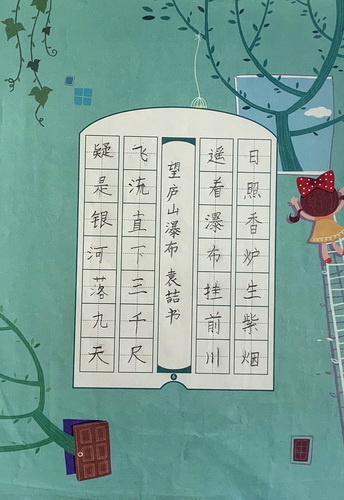 日照香炉生紫烟
遥看瀑布挂前川
望庐山瀑布 袁喆书
飞流直下三千尺
疑是银河落九天